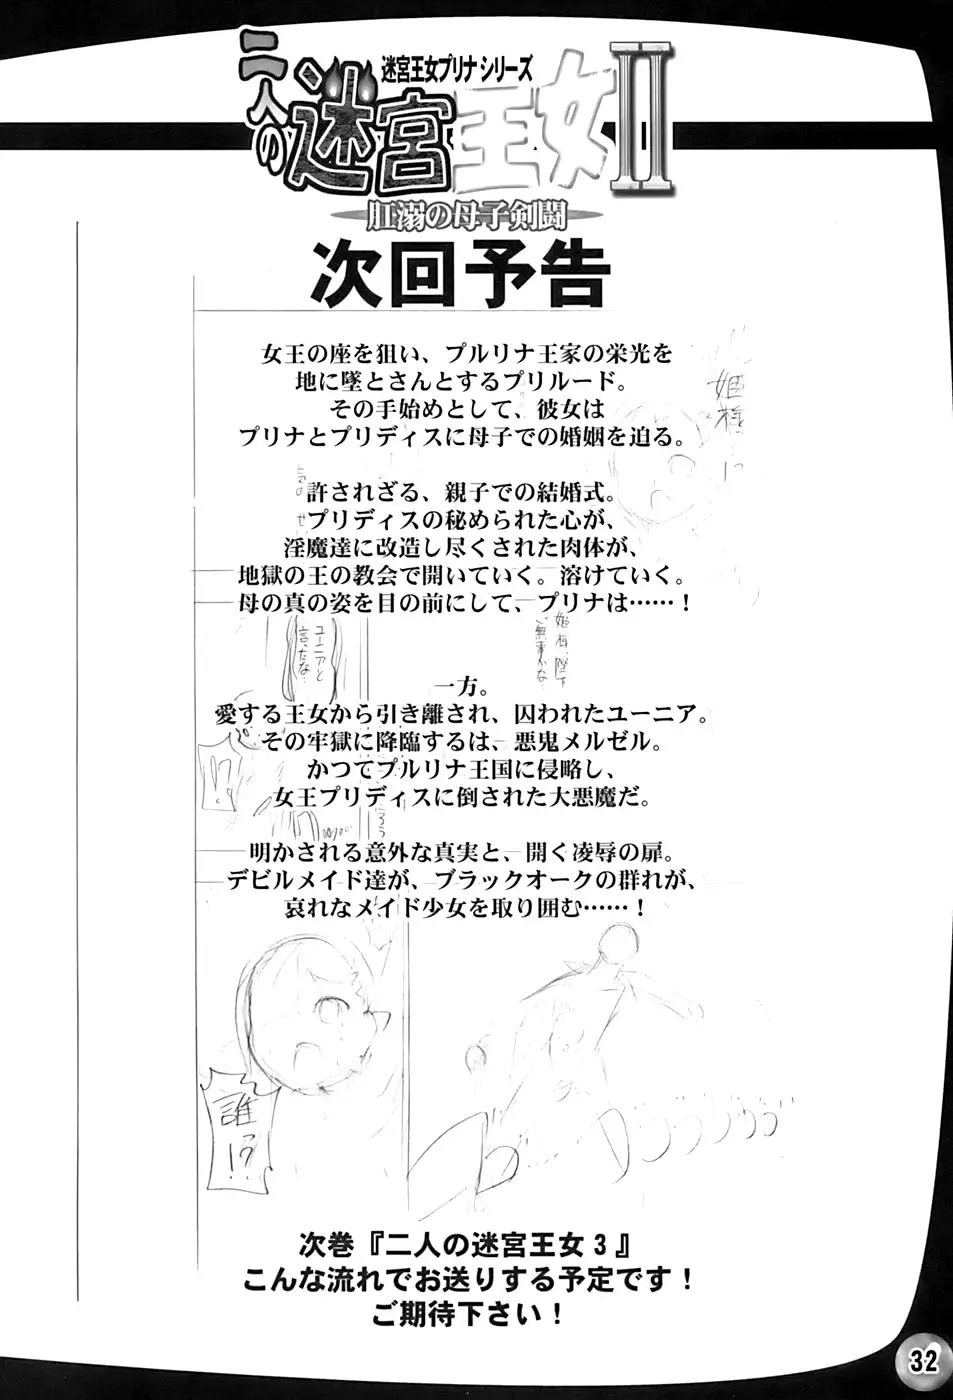 迷宮王女プリナシリーズ
二人の迷宮王女II
肛溺の母子剣闘
次回予告
女王の座を狙い、プルリナ王家の栄光を
地に墜とさんとするプリルード。
その手始めとして、彼女は
プリナとプリディスに母子での婚姻を迫る。
許されざる、親子での結婚式。
プリディスの秘められた心が、
淫魔達に改造し尽くされた肉体が、
地獄の王の教会で開いていく。溶けていく。
母の真の姿を目の前にして、プリナは……！
一方。
愛する王女から引き離され、囚われたユーニア。
その牢獄に降臨するは、悪鬼メルゼル。
かつてプルリナ王国に侵略し、
女王プリディスに倒された大悪魔だ。
明かされる意外な真実と、開く凌辱の扉。
デビルメイド達が、ブラックオークの群れが、
哀れなメイド少女を取り囲む……！
姫様…！？
姫様、陛下
ご無事かな…
ユーニアと
言ったな…
！？
誰！？
次巻『二人の迷宮王女３』
こんな流れでお送りする予定です！
ご期待下さい！
32